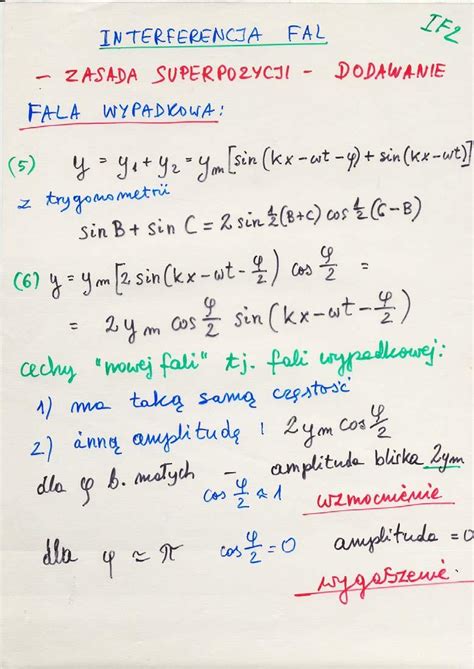 IF2
INTERFERENCJA FAL
- ZASADA SUPERPOZYCJI - DODAWANIE
FALA WYPADKOWA:
(5) y = y₁ + y₂ = yₘ[sin(kx-ωt-φ) + sin(kx-ωt)]
z trygonometrii
sin B + sin C = 2 sin ½(B+C) cos ½(C-B)
(6) y = yₘ[2 sin(kx-ωt-φ/2) cos φ/2 =
= 2yₘ cos φ/2 sin(kx-ωt-φ/2)
cechy "nowej fali" tj. fali wypadkowej:
1) ma taką samą częstość
2) inną amplitudę : 2yₘ cos φ/2
dla φ b. małych - amplituda bliska 2yₘ
cos φ/2 ≈ 1 wzmocnienie
dla φ ≃ π cos φ/2 = 0 amplituda = 0
wygaszenie.